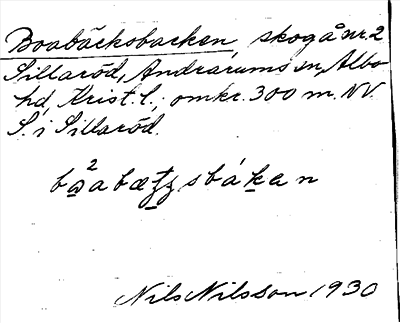 Boabäcksbacken, skog å nr. 2
Sillaröd, Andrarums sn, Albo
hd, Krist. l., omkr. 300 m. NV.
S. i Sillaröd.
Nils Nilsson 1930